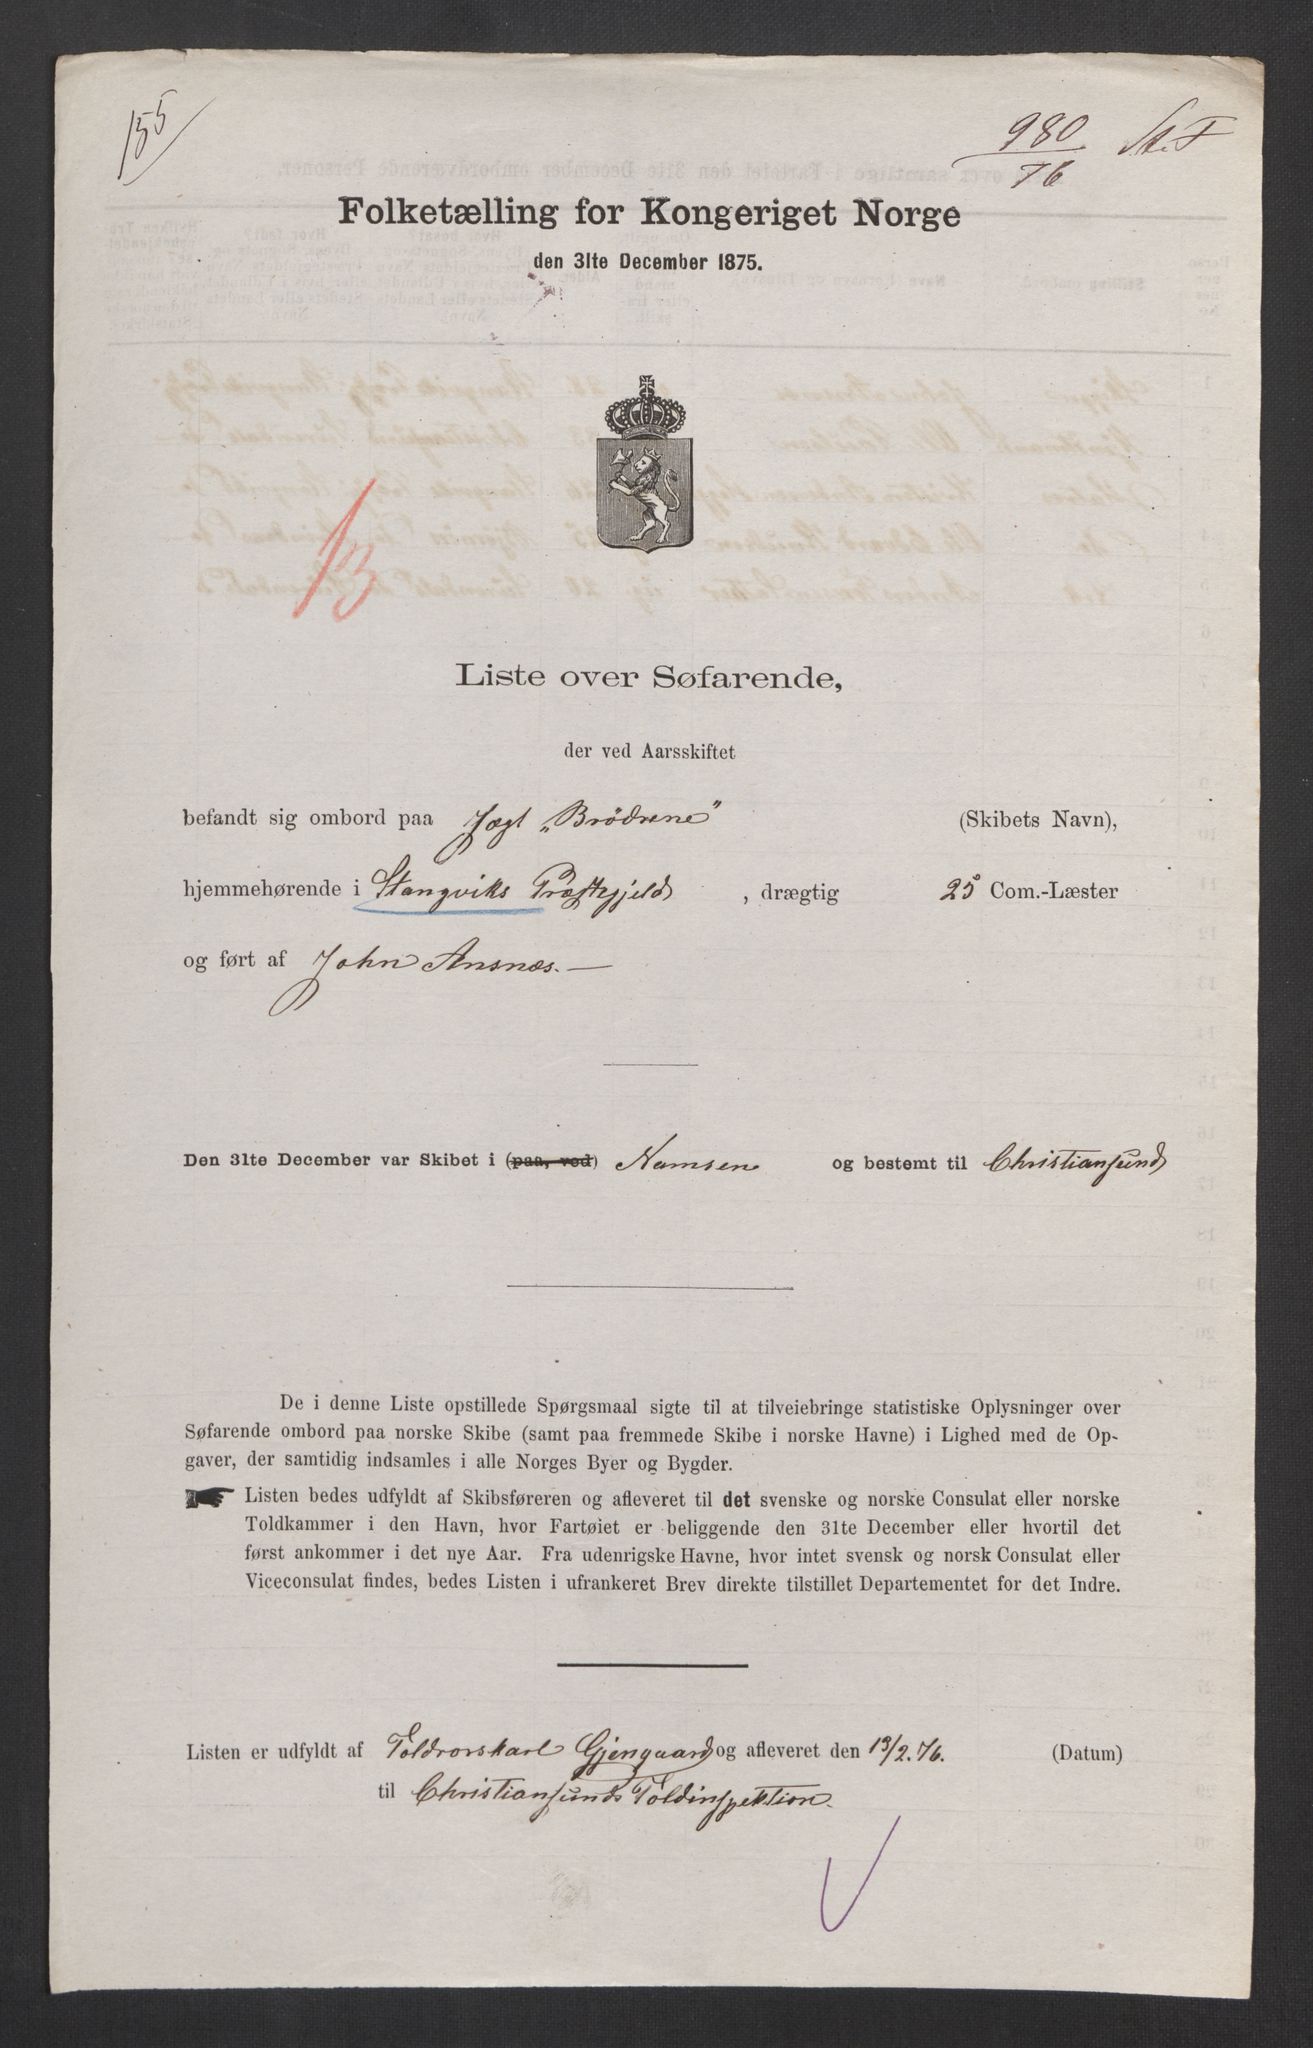 155
980 St.F
76
Folketælling for Kongeriget Norge
den 31te December 1875.
13
Liste over Søfarende,
der ved Aarsskiftet
befandt sig ombord paa Jægt „Brödrene” (Skibets Navn),
hjemmehørende i Stangviks Præstegjeld, drægtig 25 Com.-Læster
og ført af John Ansnæs.—
Den 31te December var Skibet i (paa, ved) Namsen og bestemt til Christiansund
De i denne Liste opstillede Spørgsmaal sigte til at tilveiebringe statistiske Oplysninger over
Søfarende ombord paa norske Skibe (samt paa fremmede Skibe i norske Havne) i Lighed med de Op-
gaver, der samtidig indsamles i alle Norges Byer og Bygder.
Listen bedes udfyldt af Skibsføreren og afleveret til det svenske og norske Consulat eller norske
Toldkammer i den Havn, hvor Fartøiet er beliggende den 31te December eller hvortil det
først ankommer i det nye Aar. Fra udenrigske Havne, hvor intet svensk og norsk Consulat eller
Viceconsulat findes, bedes Listen i ufrankeret Brev direkte tilstillet Departementet for det Indre.
Listen er udfyldt af Toldrorskarl Gjengaard og afleveret den 13/2.76. (Datum)
til Christiansunds Toldinspektion.